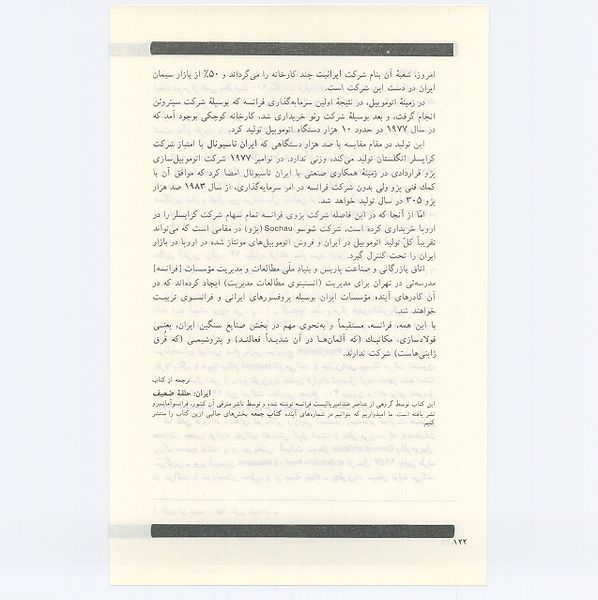 امروز، شعبهٔ آن بنام شرکت ایرانیت چند کارخانه را می‌گرداند و ۵۰٪ از بازار سیمان
ایران در دست این شرکت است.
در زمینهٔ اتوموبیل، در نتیجهٔ اولین سرمایه‌گذاری فرانسه که بوسیلهٔ شرکت سیتروئن
انجام گرفت، و بعد بوسیلهٔ شرکت رنو خریداری شد، کارخانه کوچکی بوجود آمد که
در سال ۱۹۷۷ در حدود ۱۰ هزار دستگاه اتوموبیل تولید کرد.
این تولید در مقام مقایسه با صد هزار دستگاهی که ایران ناسیونال با امتیاز شرکت
کرایسلر انگلستان تولید می‌کند، وزنی ندارد. در نوامبر ۱۹۷۷ شرکت اتوموبیل‌سازی
پژو قراردادی در زمینهٔ همکاری صنعتی با ایران ناسیونال امضا کرد که موافق آن با
کمك فنی پژو ولی بدون شرکت فرانسه در امر سرمایه‌گذاری، از سال ۱۹۸۳ صد هزار
پژو ۳۰۵ در سال تولید خواهد شد.
امّا از آنجا که در این فاصله شرکت پژوی فرانسه تمام سهام شرکت کرایسلر را در
اروپا خریداری کرده است، شرکت شوسو Sochau (پژو) در مقامی است که می‌تواند
تقریباً کلّ تولید اتوموبیل در ایران و فروش اتوموبیل‌های مونتاژ شده در اروپا در بازار
ایران را تحت کنترل گیرد.
اتاق بازرگانی و صناعت پاریس و بنیاد ملّی مطالعات و مدیریت مؤسسات [فرانسه]
مدرسه‌ئی در تهران برای مدیریت (انستیتوی مطالعات مدیریت) ایجاد کرده‌اند که در
آن کادرهای آینده مؤسسات ایران بوسیله پروفسورهای ایرانی و فرانسوی تربیت
خواهند شد.
با این همه، فرانسه، مستقیماً و به‌نحوی مهم در بخش صنایع سنگین ایران، یعنی
فولادسازی، مکانیك (که آلمان‌ها در آن شدیداً فعالند) و پتروشیمی (که قُرق
ژاپنی‌هاست) شرکت ندارند.
ترجمه از کتاب
ایران: حلقهٔ ضعیف
این کتاب توسط گروهی از عناصر ضدامپریالیست فرانسه نوشته شده و توسط ناشر مترقی آن کشور، فرانسوآماسپرو
نشر یافته است. ما امیدواریم که بتوانیم در شماره‌های آینده کتاب جمعه بخش‌های جالبی ازین کتاب را منتشر
کنیم.
۱۲۲